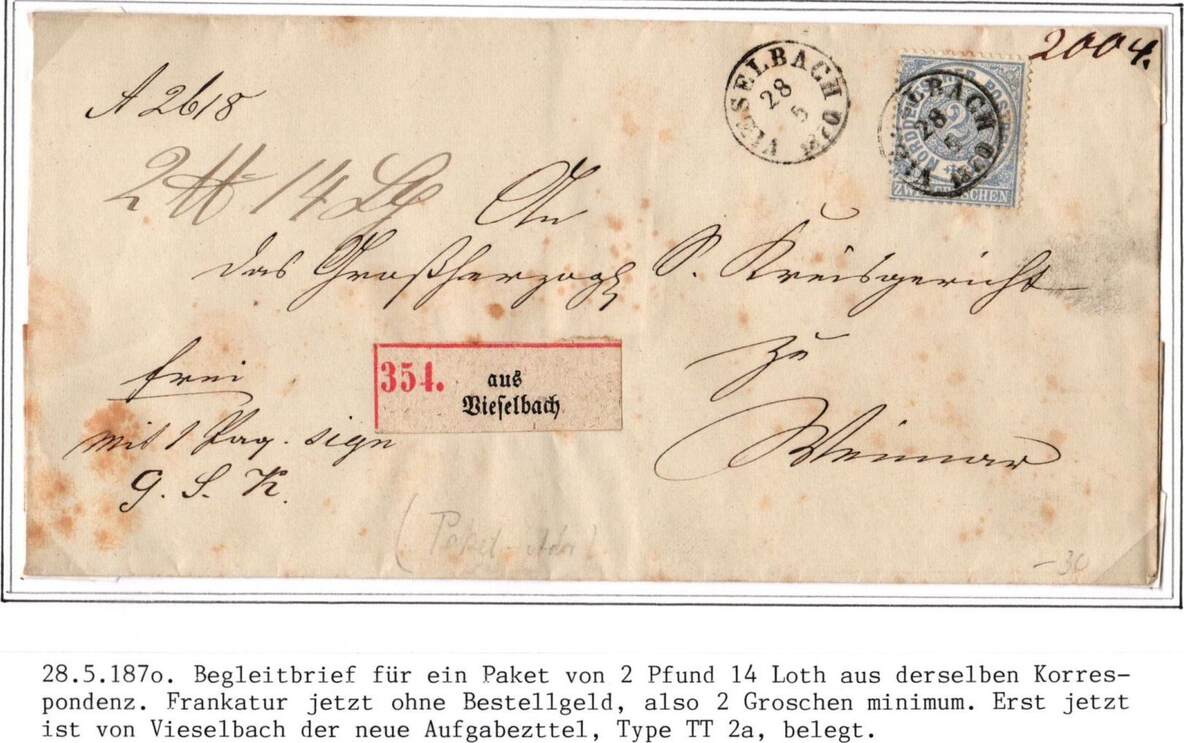 2004.
VIESELBACH
28
5
VIESELBACH
28
5
NORDDEUTSCHER POSTBEZIRK
2
ZWEI GROSCHEN
A 2618
2 ℔ 14 Lth
An
das Großherzogl S. Kreisgericht
zu
Weimar
frei
mit 1 Paq. sign
G. S. K.
354. aus
Vieselbach
-30
28.5.187o. Begleitbrief für ein Paket von 2 Pfund 14 Loth aus derselben Korres-
pondenz. Frankatur jetzt ohne Bestellgeld, also 2 Groschen minimum. Erst jetzt
ist von Vieselbach der neue Aufgabezttel, Type TT 2a, belegt.